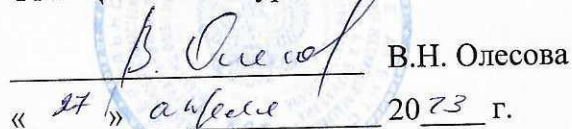 В. Олесов В.Н. Олесова
« 27 » апреля 2023 г.